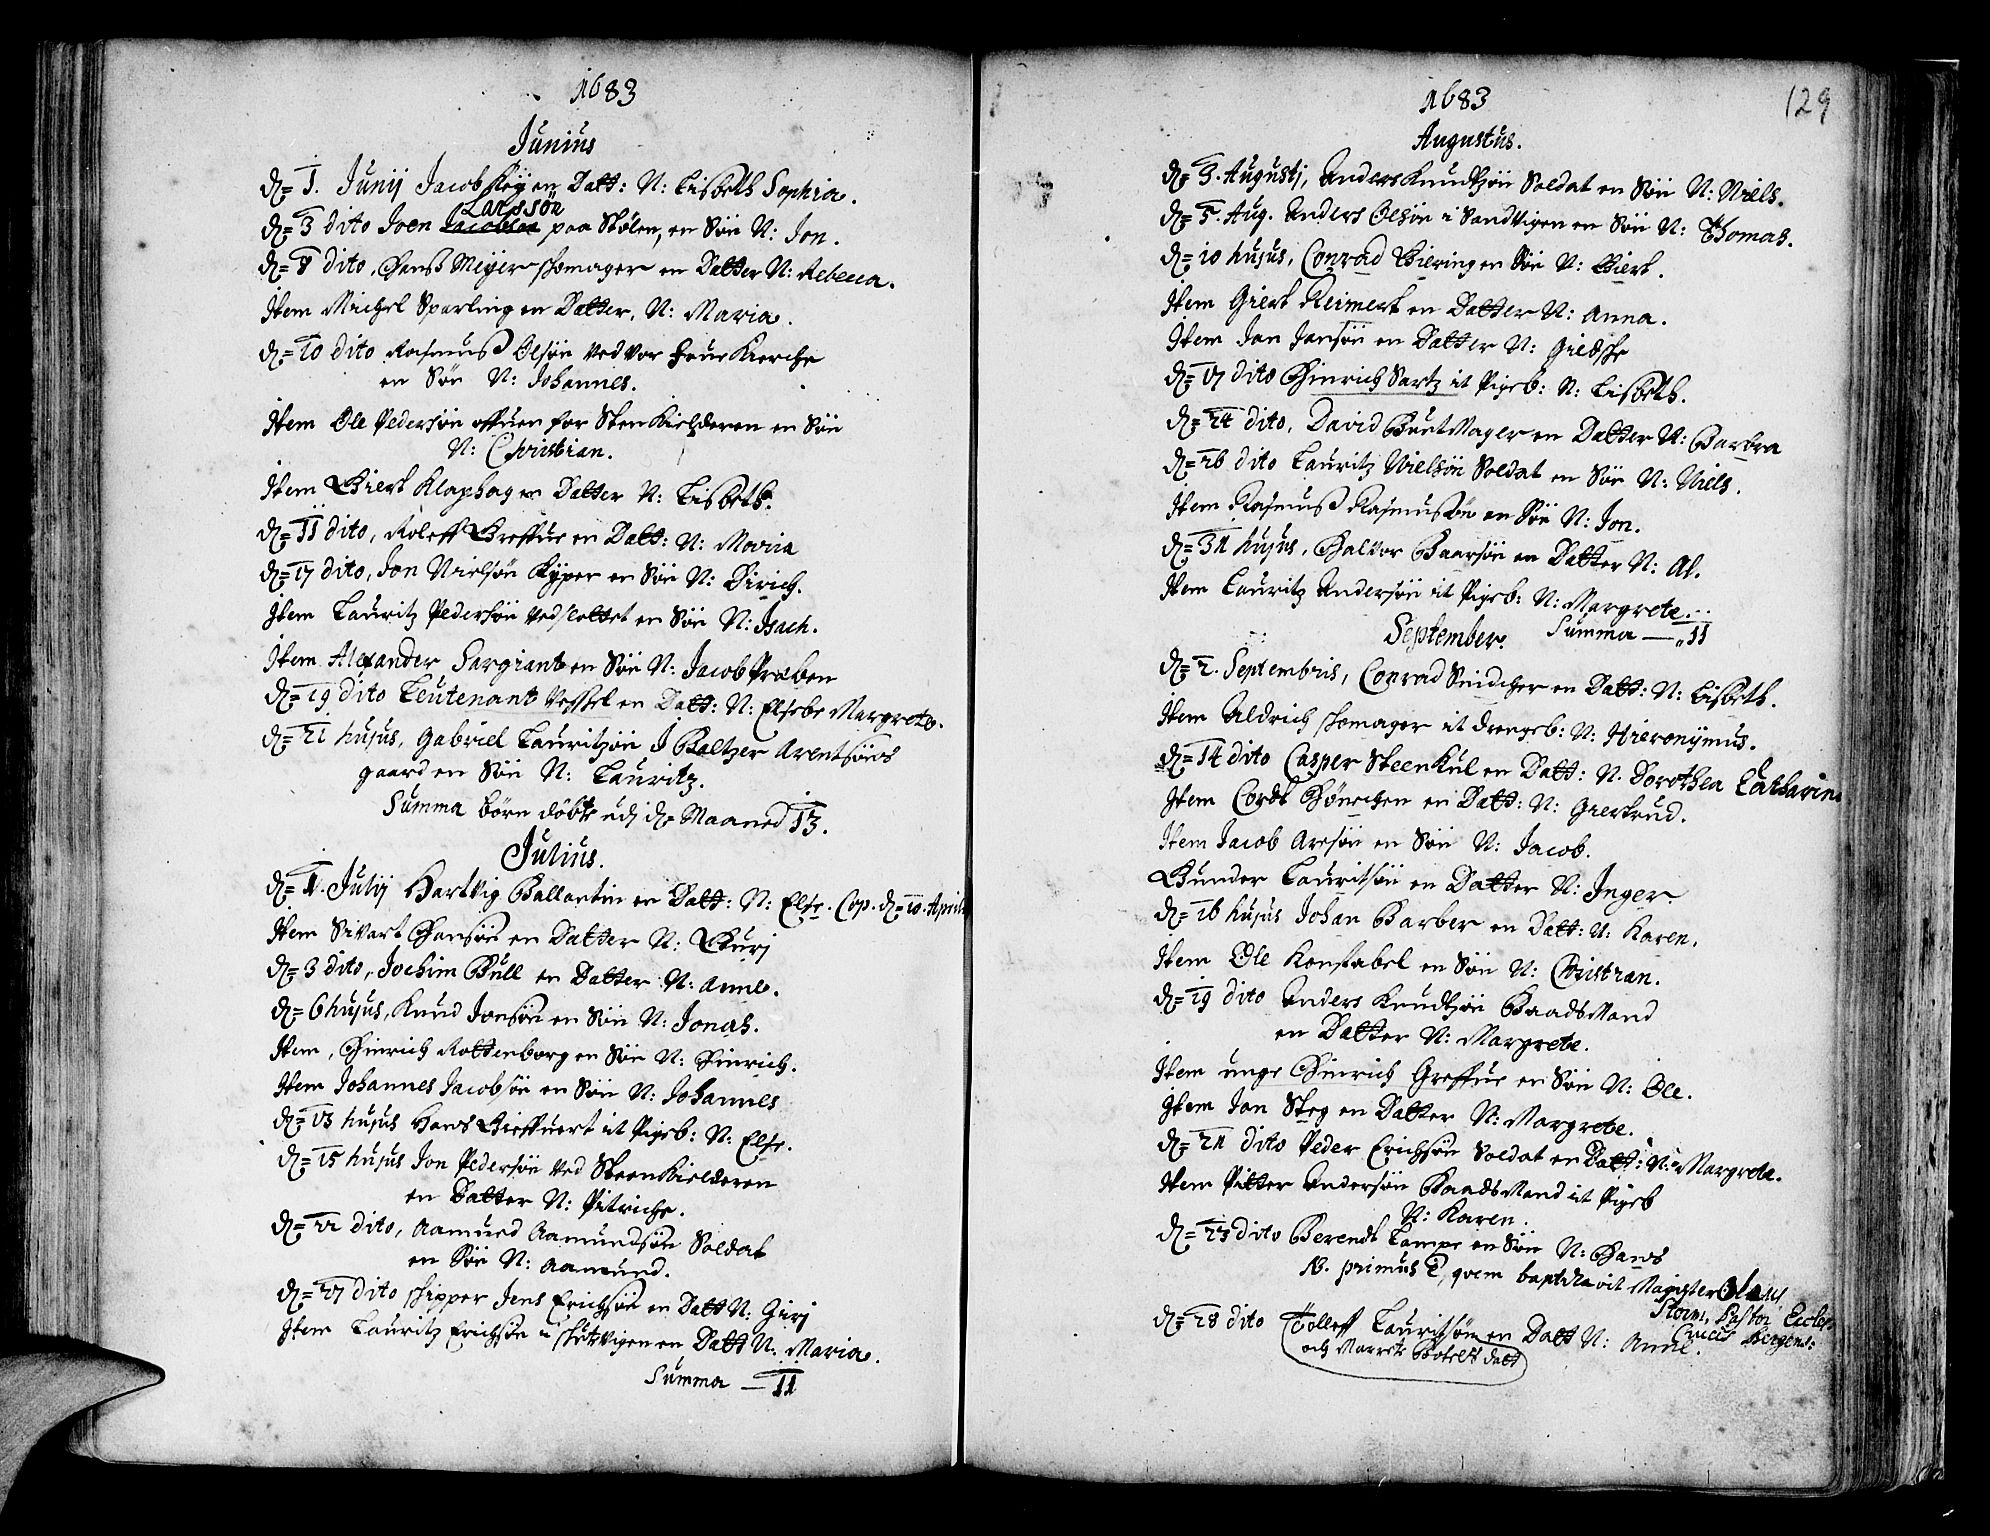 1683
Junius
D= 1. Junij Jacob Keÿ en Datt: N: Lisbeth Sophia.
Larssøn
D= 3 dito Joen Jacobsøn paa Stølen, en Søn N: Jon.
D= 8 dito, Hanß Meÿer skomager en Datter N: Rebecca.
Item Michel Sparling en Datter, N: Maria.
D= 10 dito Rasmuß Olsøn ved vor frue Kierche
en Søn N: Johannes.
Item Ole Pedersøn offuen for Steen Kielderen en Søn
N: Christian.
Item Giert Klaphag en Datter N: Lisbeth.
D= 11 dito, Roleff Greffue en Datt: N: Maria
D= 17 dito, Jon Nielsøn Kÿper en Søn N: Dirich.
Item Lauritz Pedersøn ved slottet en Søn N: Isach.
Item Alexander Sargiant en Søn N: Jacob Preben
D= 19 dito Leutenant Vessel en Datt: N: Elsebe Margrete.
D= 21 hujus, Gabriel Lauritzøn J Baltzer Arentsøns
gaard en Søn N: Lauritz.
Summa børn døbte udj d= Maaned 13.
Julius.
D= 1. Julij Hartvig Ballantin en Datt: N: Else. Cop. d= 10. April
Item Sivart Hansøn en Datter N: Gurj
D= 3 dito, Jochim Bull en Datter N: Anne.
D= 6 hujus, Knud Jonsøn en Søn N: Jonas.
Item, Hinrich Rottenborg en Søn N: Hinrich.
Item Johannes Jacobsøn en Søn N: Johannes
D= 13 hujus Hans Gieffuert it Pigeb: N: Else.
D= 15 hujus Jon Pedersøn ved Steen Kielderen
en Datter N: Pitriche.
D= 22 dito, Aamund Aamundsøn Soldat
en Søn N: Aamund.
D= 27 dito skipper Jens Erichsøn en Datt N: Gurj
Item Lauritz Erichsøn i skutevigen en Datt N: Maria.
Summa — 11
1683
129
Augustus.
D= 3. Augustj, Anders Knudtzøn Soldat en Søn N: Niels.
D= 5. Aug. Anders Olsøn i Sandvigen en Søn N: Thomas.
D= 10 hujus, Conrad Giering en Søn N: Giert.
Item Giert Reimert en Datter N: Anna.
Item Jan Jansøn en Datter N: Gieske
D= 17 dito Hinrich Sartz it Pigeb: N: Lisbeth.
D= 24 dito, David Buntmager en Datter N: Barbra
D= 26 dito Lauritz Nielsøn Soldat en Søn N: Niels.
Item Rasmuß Rasmusøn en Søn N: Jon.
D= 31 hujus, Halvor Baarsøn en Datter N: Al.
Item Lauritz Andersøn it Pigeb: N: Margrete.
Summa — 11
September.
D= 2. Septembris, Conrad Snidcher en Datt: N: Lisbeth.
Item Aldrich skomager it drengeb: N: Hieronÿmus.
D= 14 dito Casper Steenkul en Datt: N. Dorothea Catharina
Item Cordt Hønecken en Datt: N: Giertrud.
Item Jacob Aresøn en Søn N: Jacob.
Gunder Lauritsøn en Datter N: Inger
D= 16 hujus Johan Barber en Datt: N: Karen.
Item Ole Konstabel en Søn N: Christian.
D= 19 dito Anders Knudtzøn Baadsmand
en Datter N: Margrete.
Item unge Hinrich Greffue en Søn N: Ole.
Item Jan Steg en Datter N: Margrete.
D= 21 dito Peder Erichsøn Soldat en Datt: N: Margrete.
Item Pitter Andersøn Baadsmand it Pigeb
N: Karen.
D= 23 dito Berendt Lampe en Søn N: Hans
NB. primus ē, qvem baptizavit Magister Olaus
Storm, Pastor Eccles:
Crucis Bergens:
D= 28 dito Tolleff Lauritsøn en Datt N: Anne.
och Marrete Botelss datt